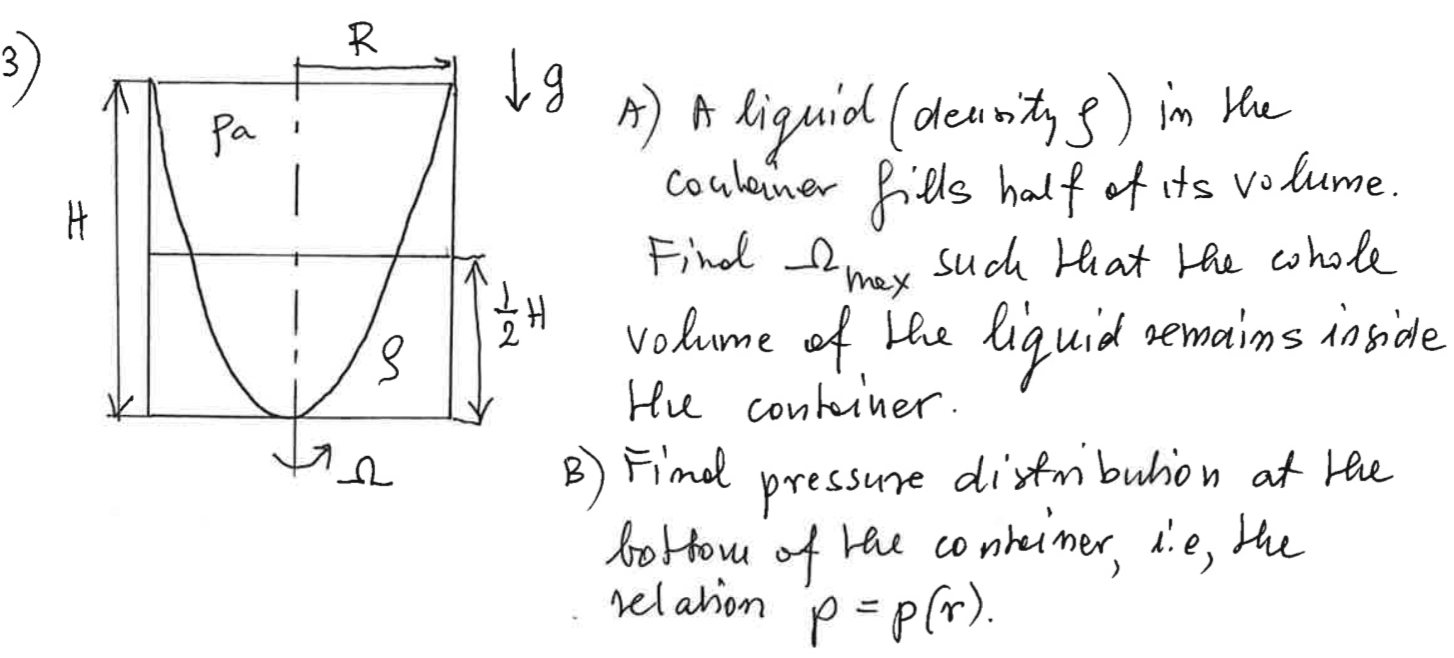 3)
R
↓ g
pa
H
1/2 H
ρ
Ω
A) A liquid (density ρ) in the
container fills half of its volume.
Find Ωmax such that the whole
volume of the liquid remains inside
the container.
B) Find pressure distribution at the
bottom of the container, i.e, the
relation p = p(r).